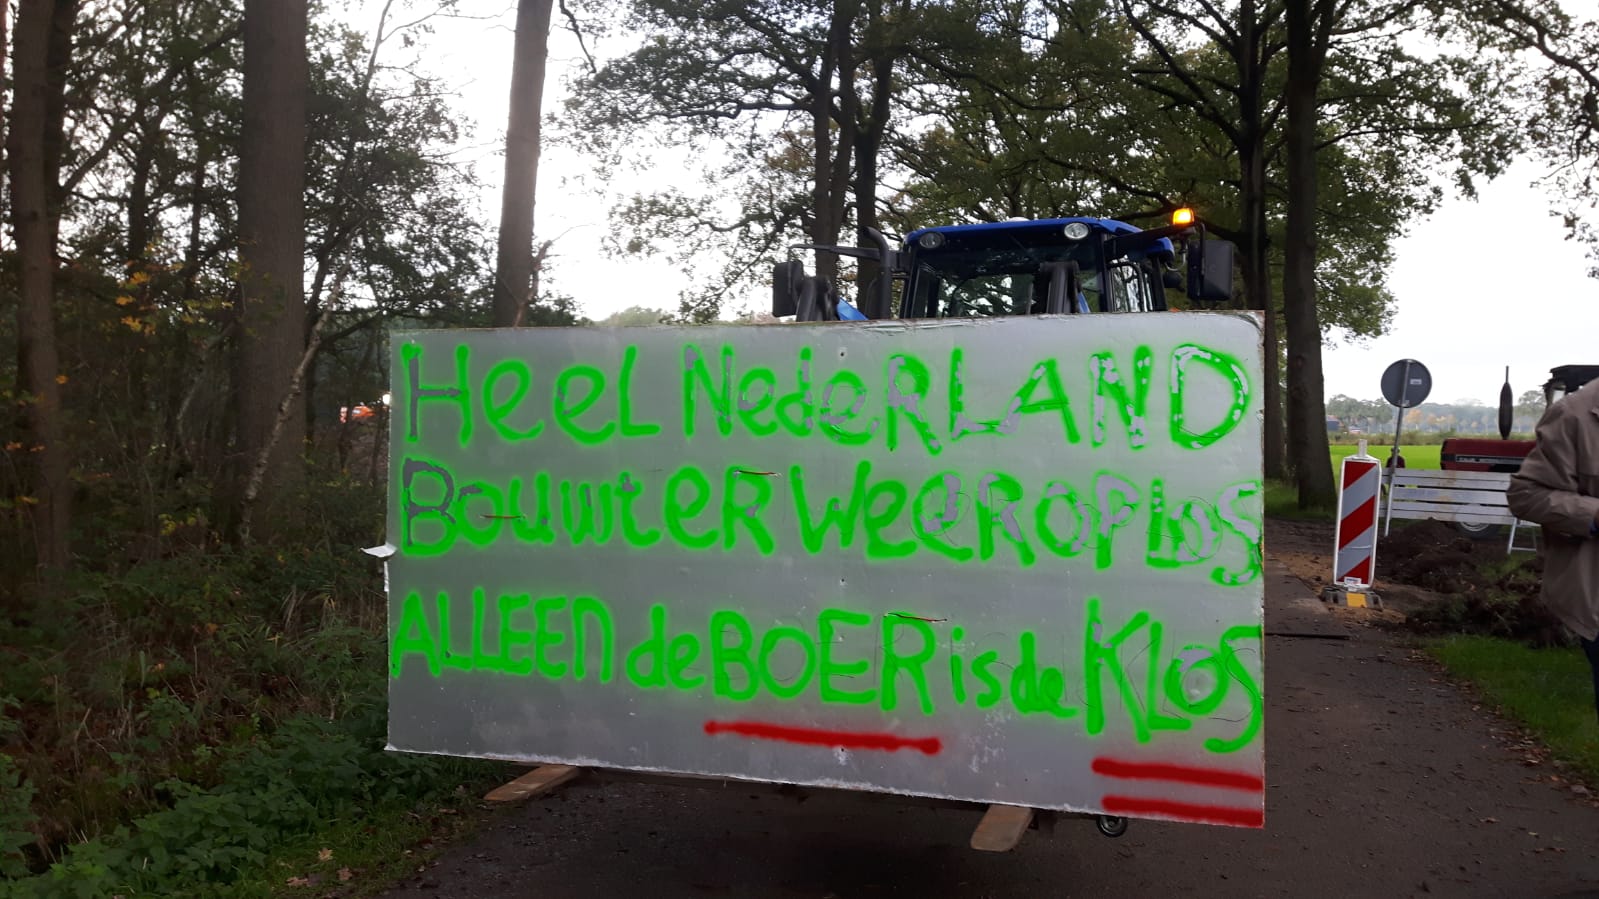 HeeL NedeRLAND
BouwteR WeeROPLoS
ALLEEn de BOER is de KLoS